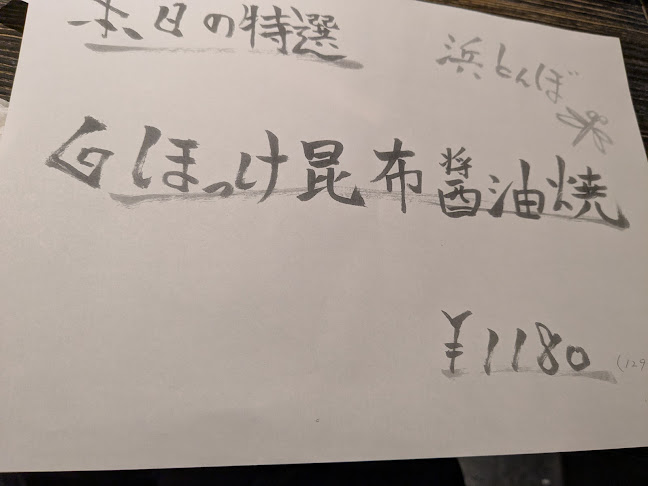 本日の特選
浜とんぼ
ほっけ昆布醤油焼
¥1180
(129